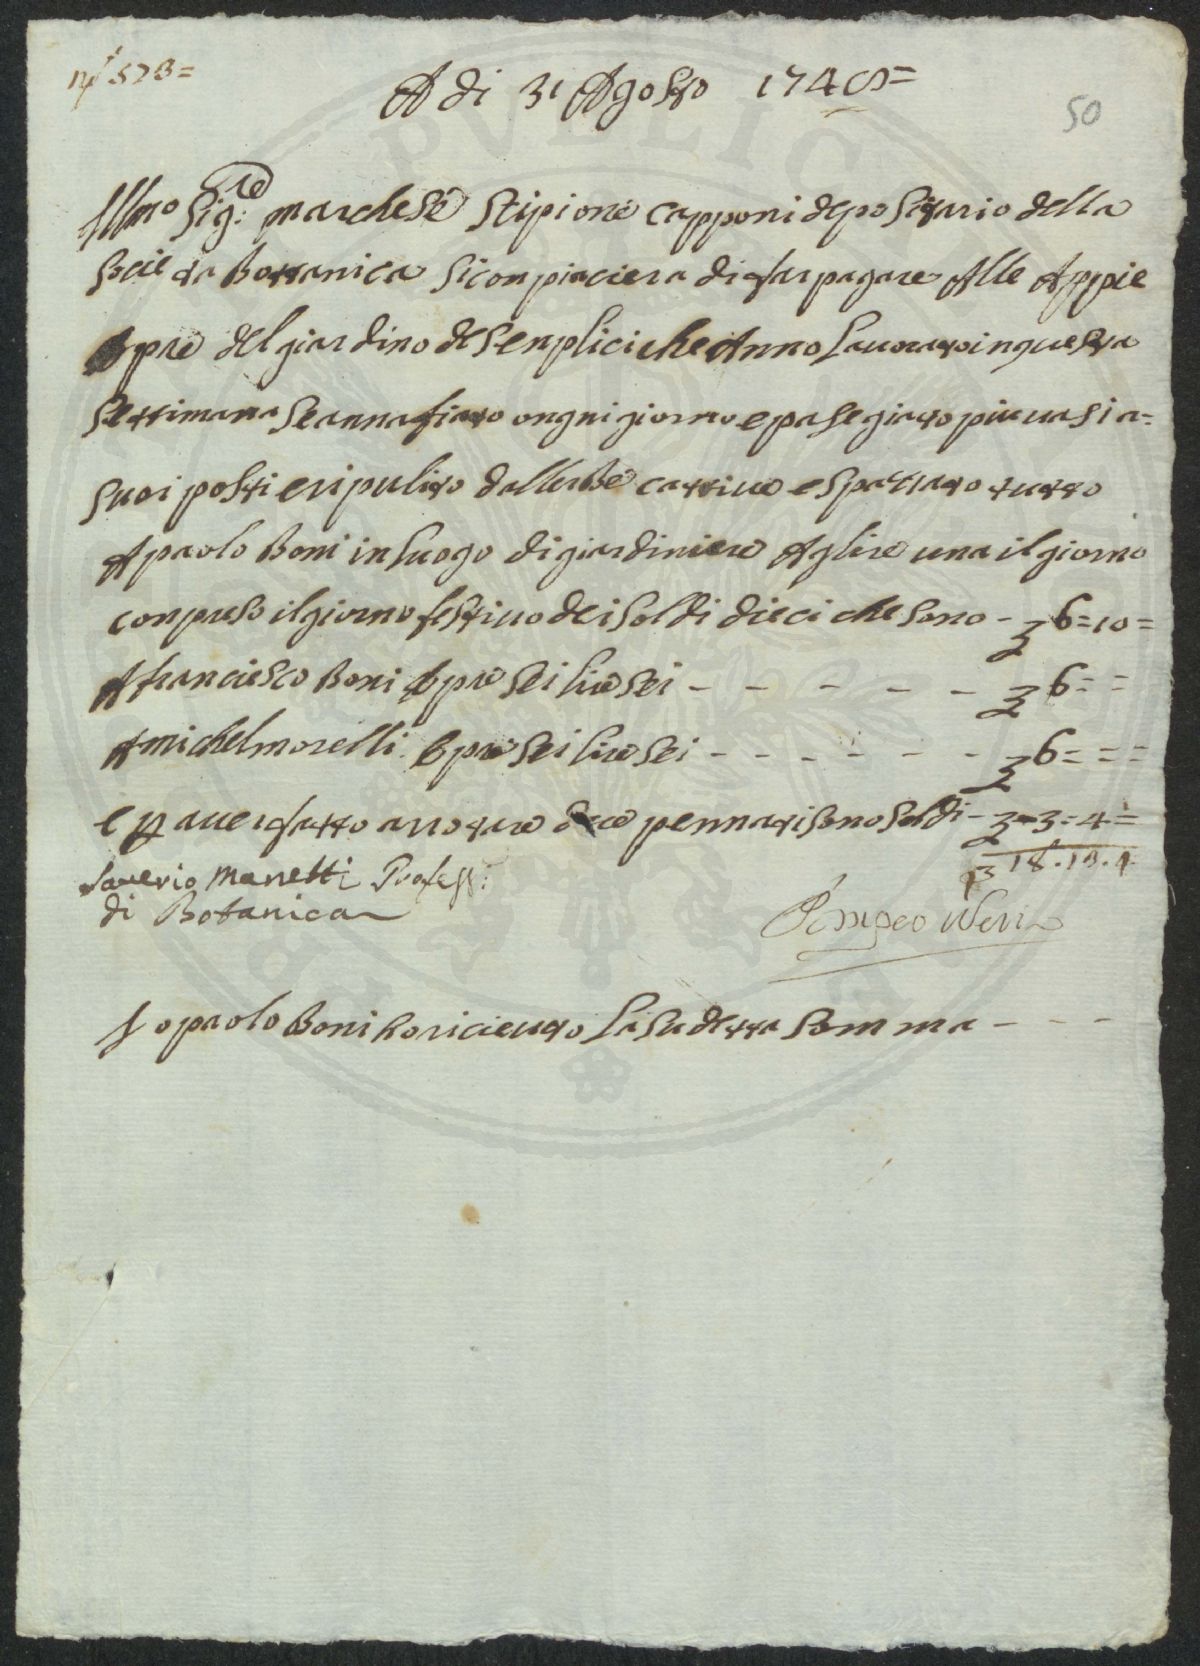 nº 523=
A di 31 Agosto 1748=
50
Illmo Sig:re marchese Scipione Capponi depositario della
Socie ta Bottanica Si conpiaciera di far pagare Alle Appie
Opre del giardino de Senplici che Anno Lauorato in questa
Settimana Se annafiato ongni giorno e pasegiato piu uasi a=
suoi posti e ripulito dallerbe cattiue e spazzato tutto
A paolo Boni in luogo di giardiniere A glire una il giorno
conpreso il giorno festiuo dei soldi dieci che sono - £ 6=10=
A franciesco Boni Opre sei lire sei - - - - - £ 6= =
A michel morelli Opre sei lire sei - - - - - - £ 6= = =
e p auer fatto arrotare due pennati sono soldi - £ - 3= 4=
£ 18.13.4
Saverio Manetti Profess:
di Botanica
Pompeo Neri
Io paolo Boni ho riceuto La sudetta Somma - - -
PVBLIC